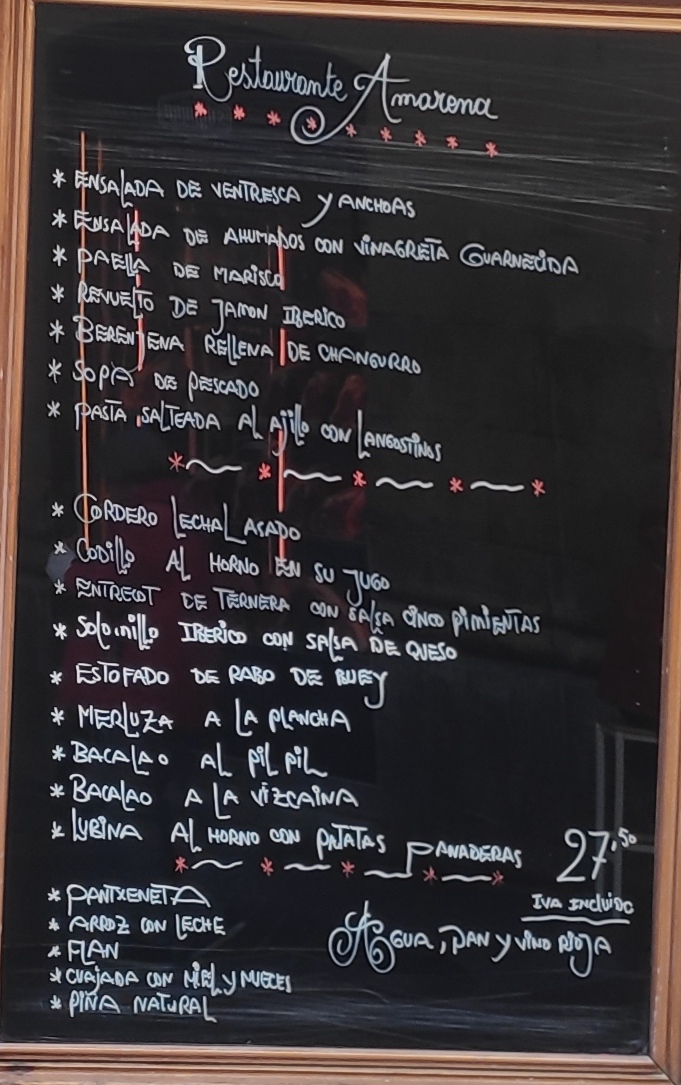 Restaurante Amarena
* ENSALADA DE VENTRESCA Y ANCHOAS
* ENSALADA DE AHUMADOS CON VINAGRETA GUARNECIDA
* PAELLA DE MARISCO
* REVUELTO DE JAMON IBERICO
* BERENJENA RELLENA DE CHANGURRO
* SOPA DE PESCADO
* PASTA SALTEADA AL AJILLO CON LANGOSTINOS
* CORDERO LECHAL ASADO
* CODILLO AL HORNO EN SU JUGO
* ENTRECOT DE TERNERA CON SALSA CINCO PIMIENTAS
* SOLOMILLO IBERICO CON SALSA DE QUESO
* ESTOFADO DE RABO DE BUEY
* MERLUZA A LA PLANCHA
* BACALAO AL PIL PIL
* BACALAO A LA VIZCAINA
* LUBINA AL HORNO CON PATATAS PANADERAS
27,50
IVA INCLUIDO
* PANTXENETA
* ARROZ CON LECHE
* FLAN
* CUAJADA CON MIEL Y NUECES
* PIÑA NATURAL
AGUA, PAN Y VINO RIOJA